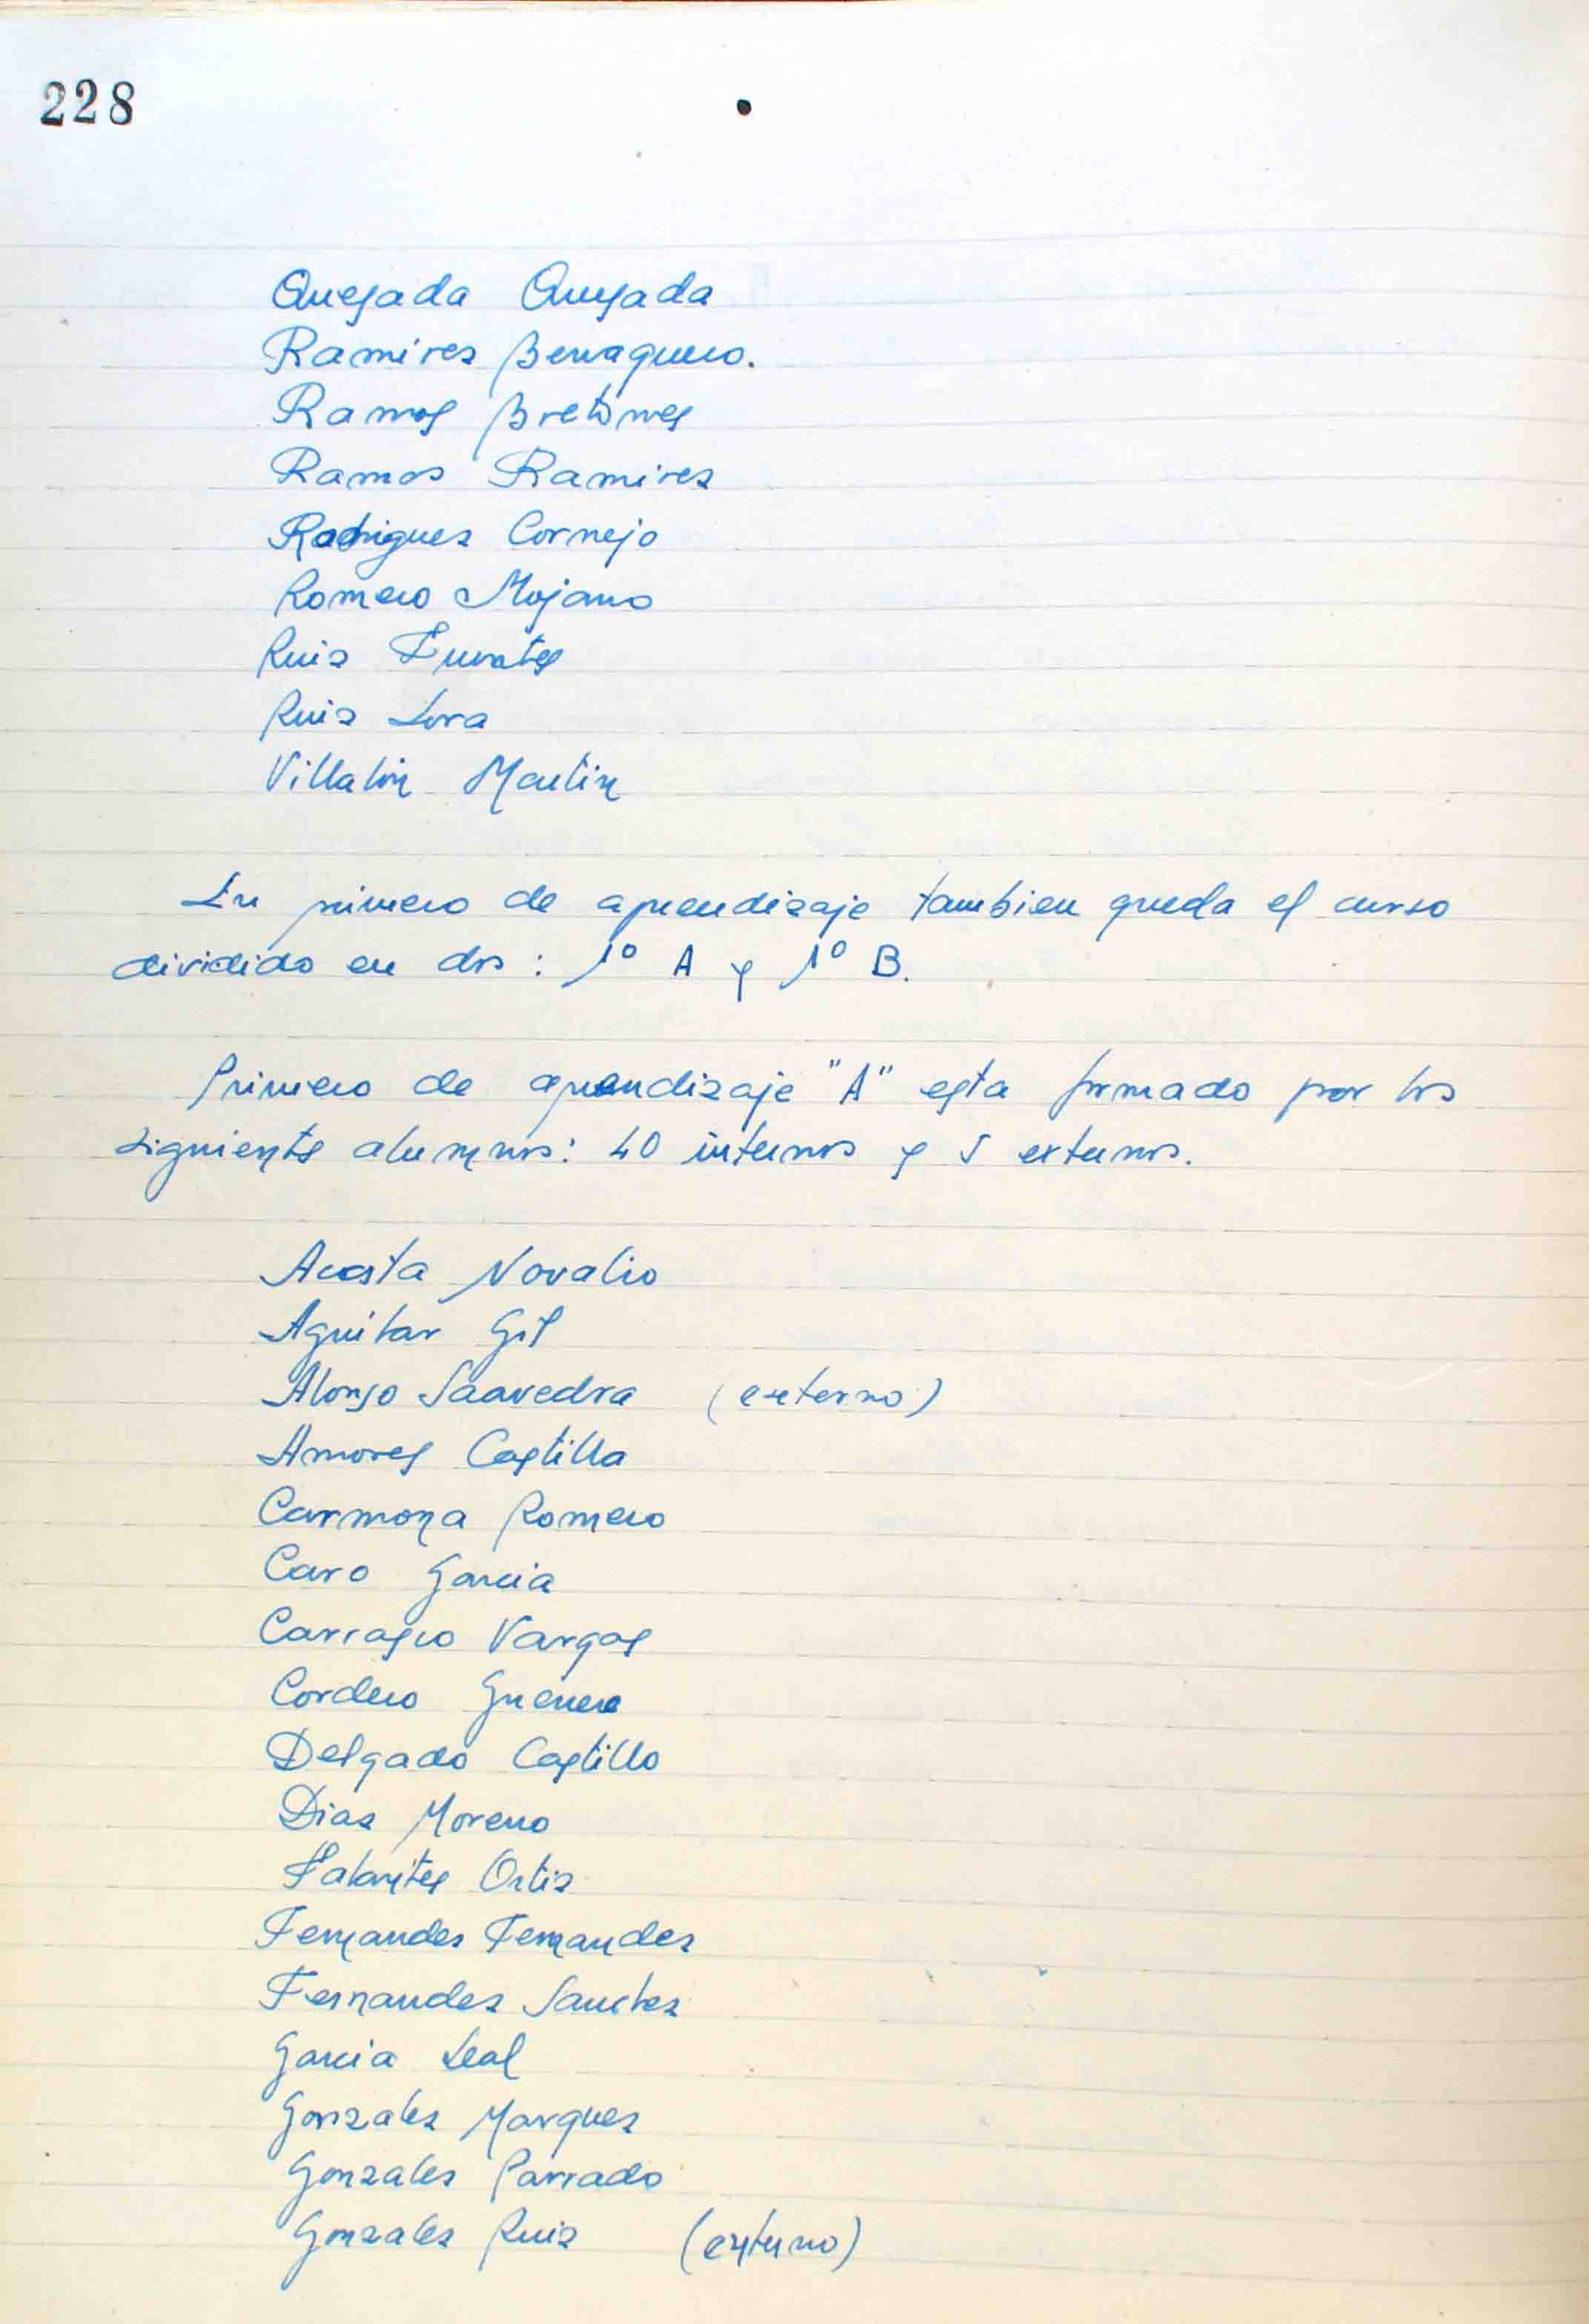 228
Quesada Quesada
Ramirez Berraquero.
Ramos Bretones
Ramos Ramirez
Rodriguez Cornejo
Romero Mojano
Ruiz Fuentes
Ruiz Lora
Villalón Martín
En primero de aprendizaje tambien queda el curso
dividido en dos: 1º A y 1º B.
Primero de aprendizaje "A" esta formado por los
siguientes alumnos: 40 internos y 5 externos.
Acosta Novalio
Aguilar Gil
Alonso Saavedra (externo)
Amores Castilla
Carmona Romero
Caro Garcia
Carrasco Vargas
Cordero Guerrero
Delgado Castillo
Diaz Moreno
Fabantes Ortiz
Fernandez Fernandez
Fernandez Sanchez
Garcia Leal
Gonzalez Marquez
Gonzalez Parrado
Gonzalez Ruiz (externo)